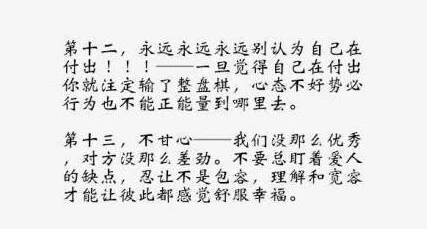 第十二，永远永远永远别认为自己在
付出！！！——一旦觉得自己在付出
你就注定输了整盘棋，心态不好势必
行为也不能正能量到哪里去。
第十三，不甘心——我们没那么优秀
，对方没那么差劲。不要总盯着爱人
的缺点，忍让不是包容，理解和宽容
才能让彼此都感觉舒服幸福。